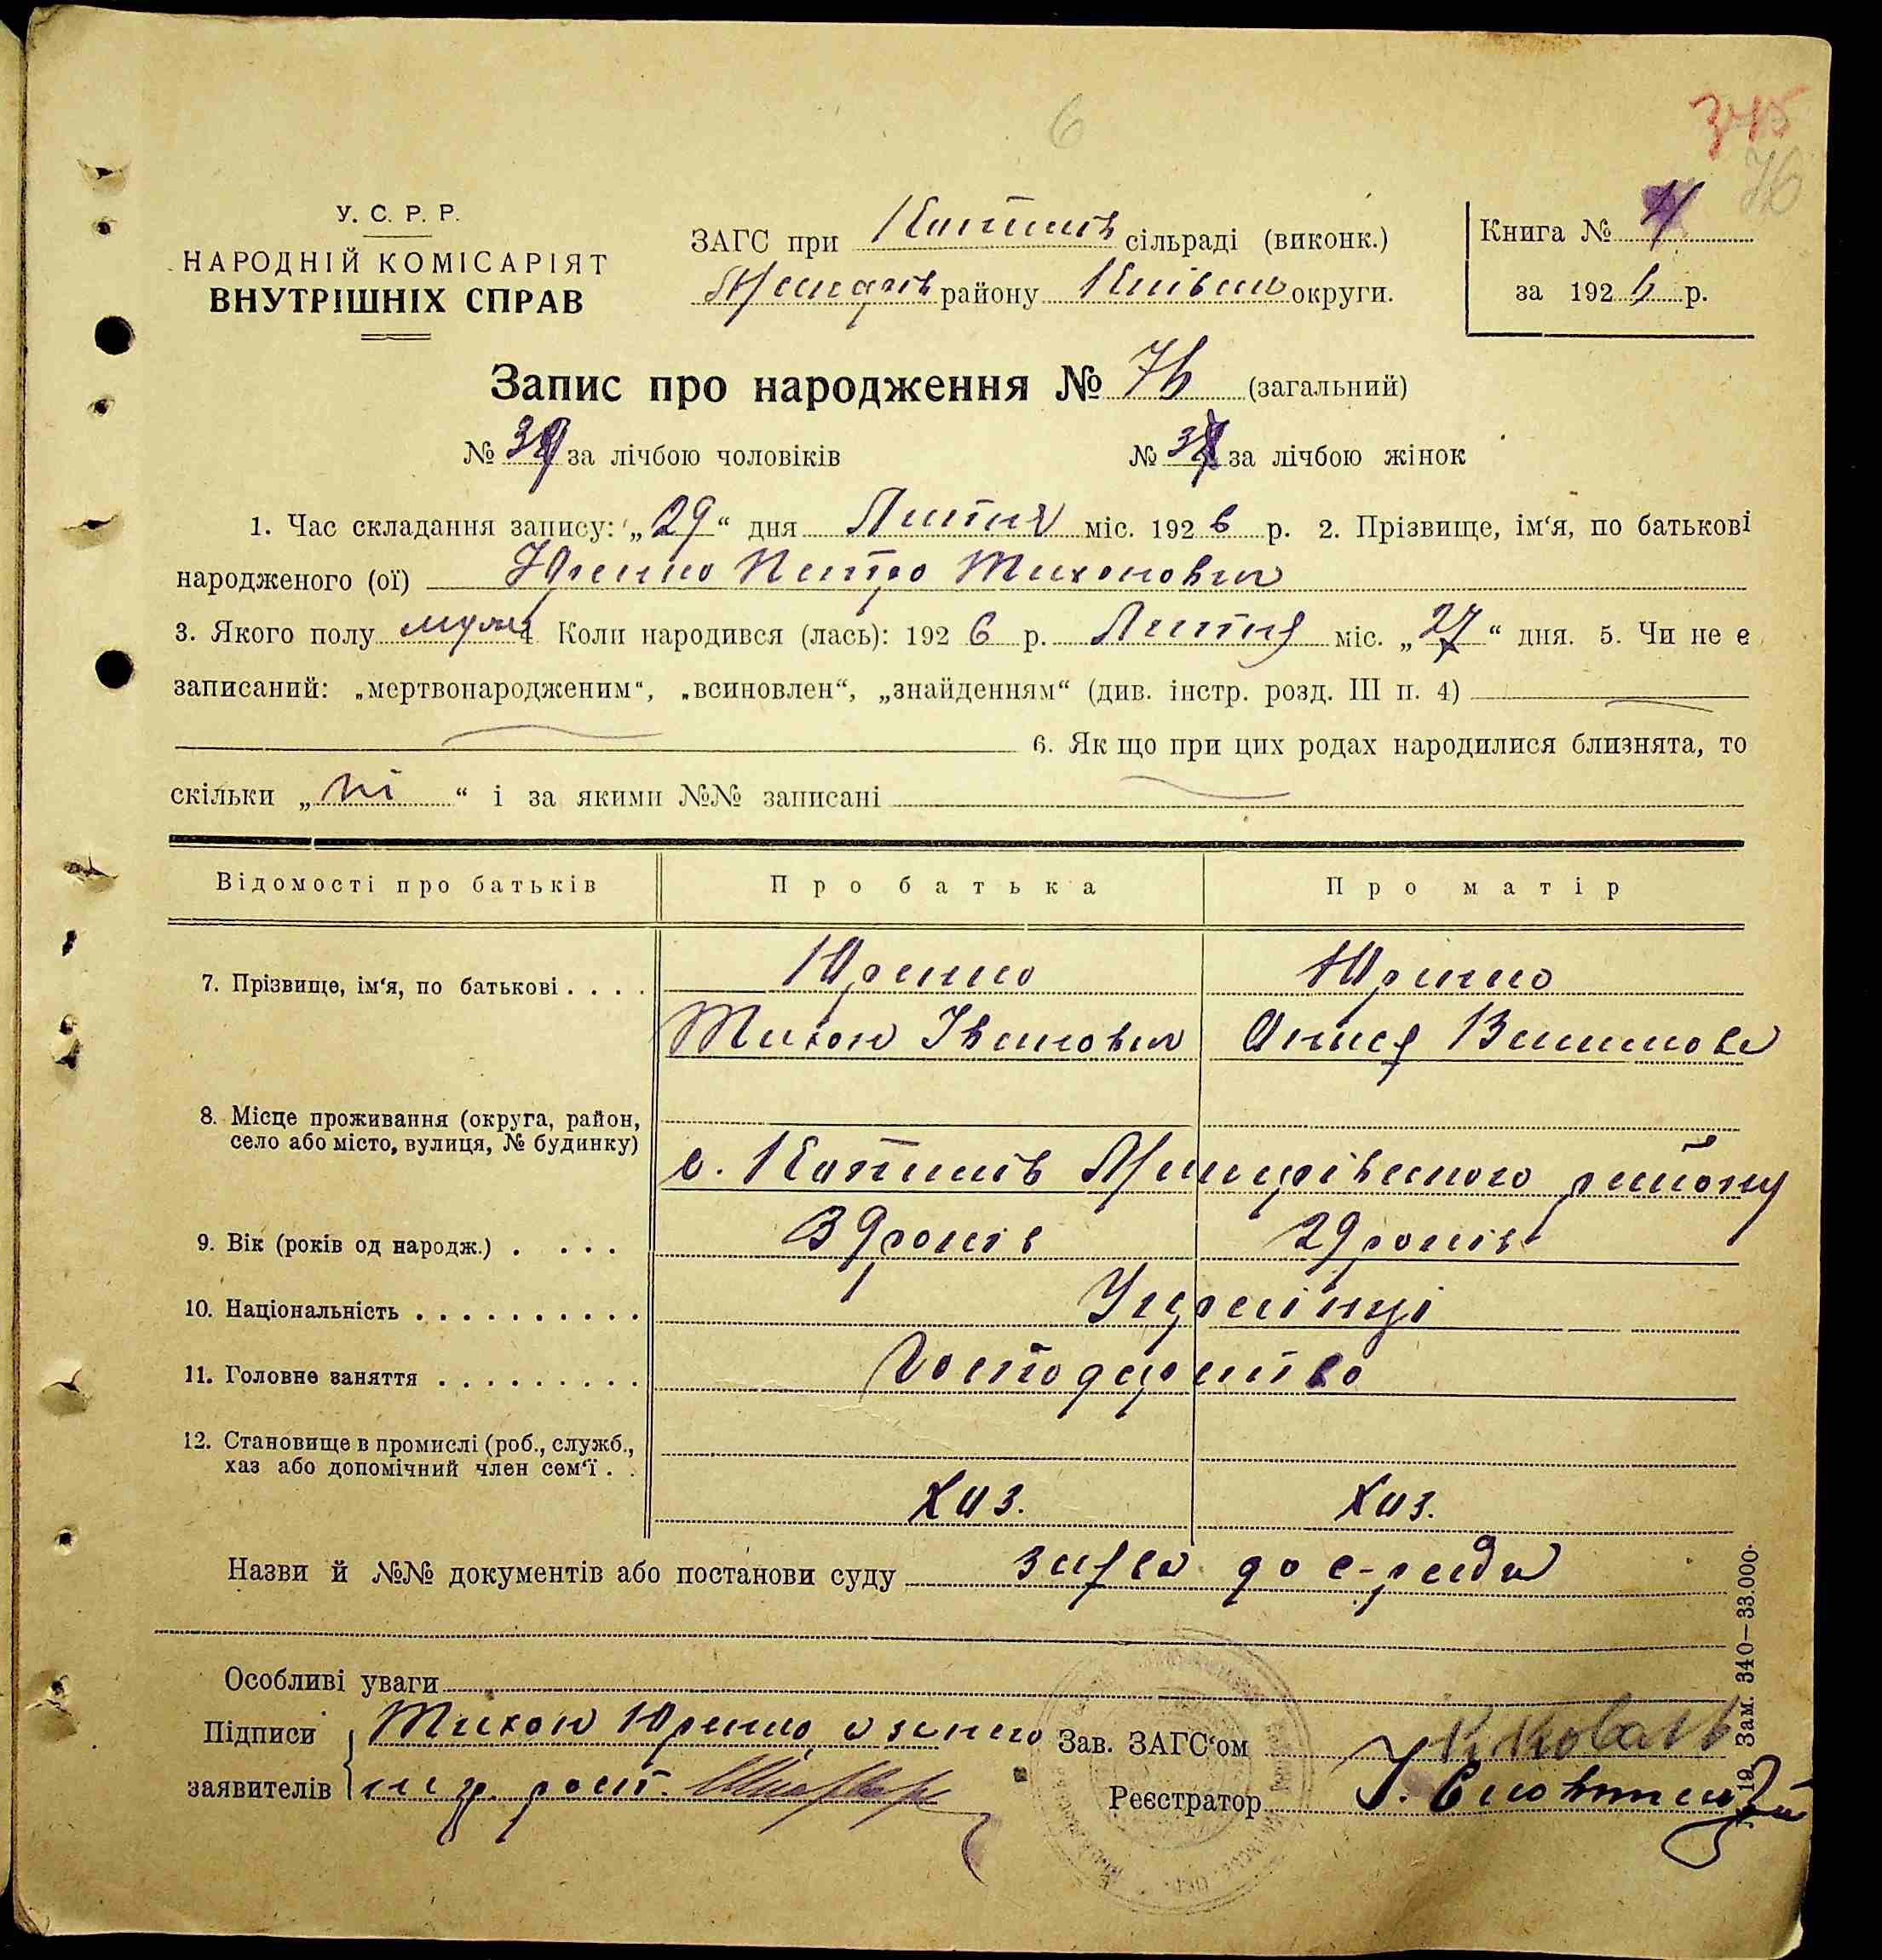 6
345
76
У. С. Р. Р.
НАРОДНІЙ КОМІСАРІЯТ
ВНУТРІШНІХ СПРАВ
ЗАГС при Копилів сільраді (виконк.)
району Київськ округи.
Книга № 4
за 1926 р.
Запис про народження № 76 (загальний)
№ 39 за лічбою чоловіків
№ 37 за лічбою жінок
1. Час складання запису: „29“ дня Липня міс. 1926 р. 2. Прізвище, ім‘я, по батькові
народженого (ої) Юренко Петро Тихонович
3. Якого полу муж 4 Коли народився (лась): 1926 р. Липня міс. „27“ дня. 5. Чи не є
записаний: „мертвонародженим“, „всиновлен“, „знайденням“ (див. інстр. розд. III п. 4)
6. Як що при цих родах народилися близнята, то
скільки „ні“ і за якими №№ записані
Відомості про батьків Про батька Про матір
7. Прізвище, ім‘я, по батькові . . . . Юренко Юренко
Тихон Іванович Анися
8. Місце проживання (округа, район,
село або місто, вулиця, № будинку)
с. Копилів району
9. Вік (років од народж.) . . . . 39 років 29 років
10. Національність . . . . . . . . . . Українці
11. Головне заняття . . . . . . . . . Господарство
12. Становище в промислі (роб., служб.,
хаз або допомічний член сем‘ї . .
Хаз. Хаз.
Назви й №№ документів або постанови суду заява до с-ради
Особливі уваги
Підписи Тихон Юренко, а за нього Зав. ЗАГС‘ом
заявителів Реєстратор
Зам. 340—33.000.